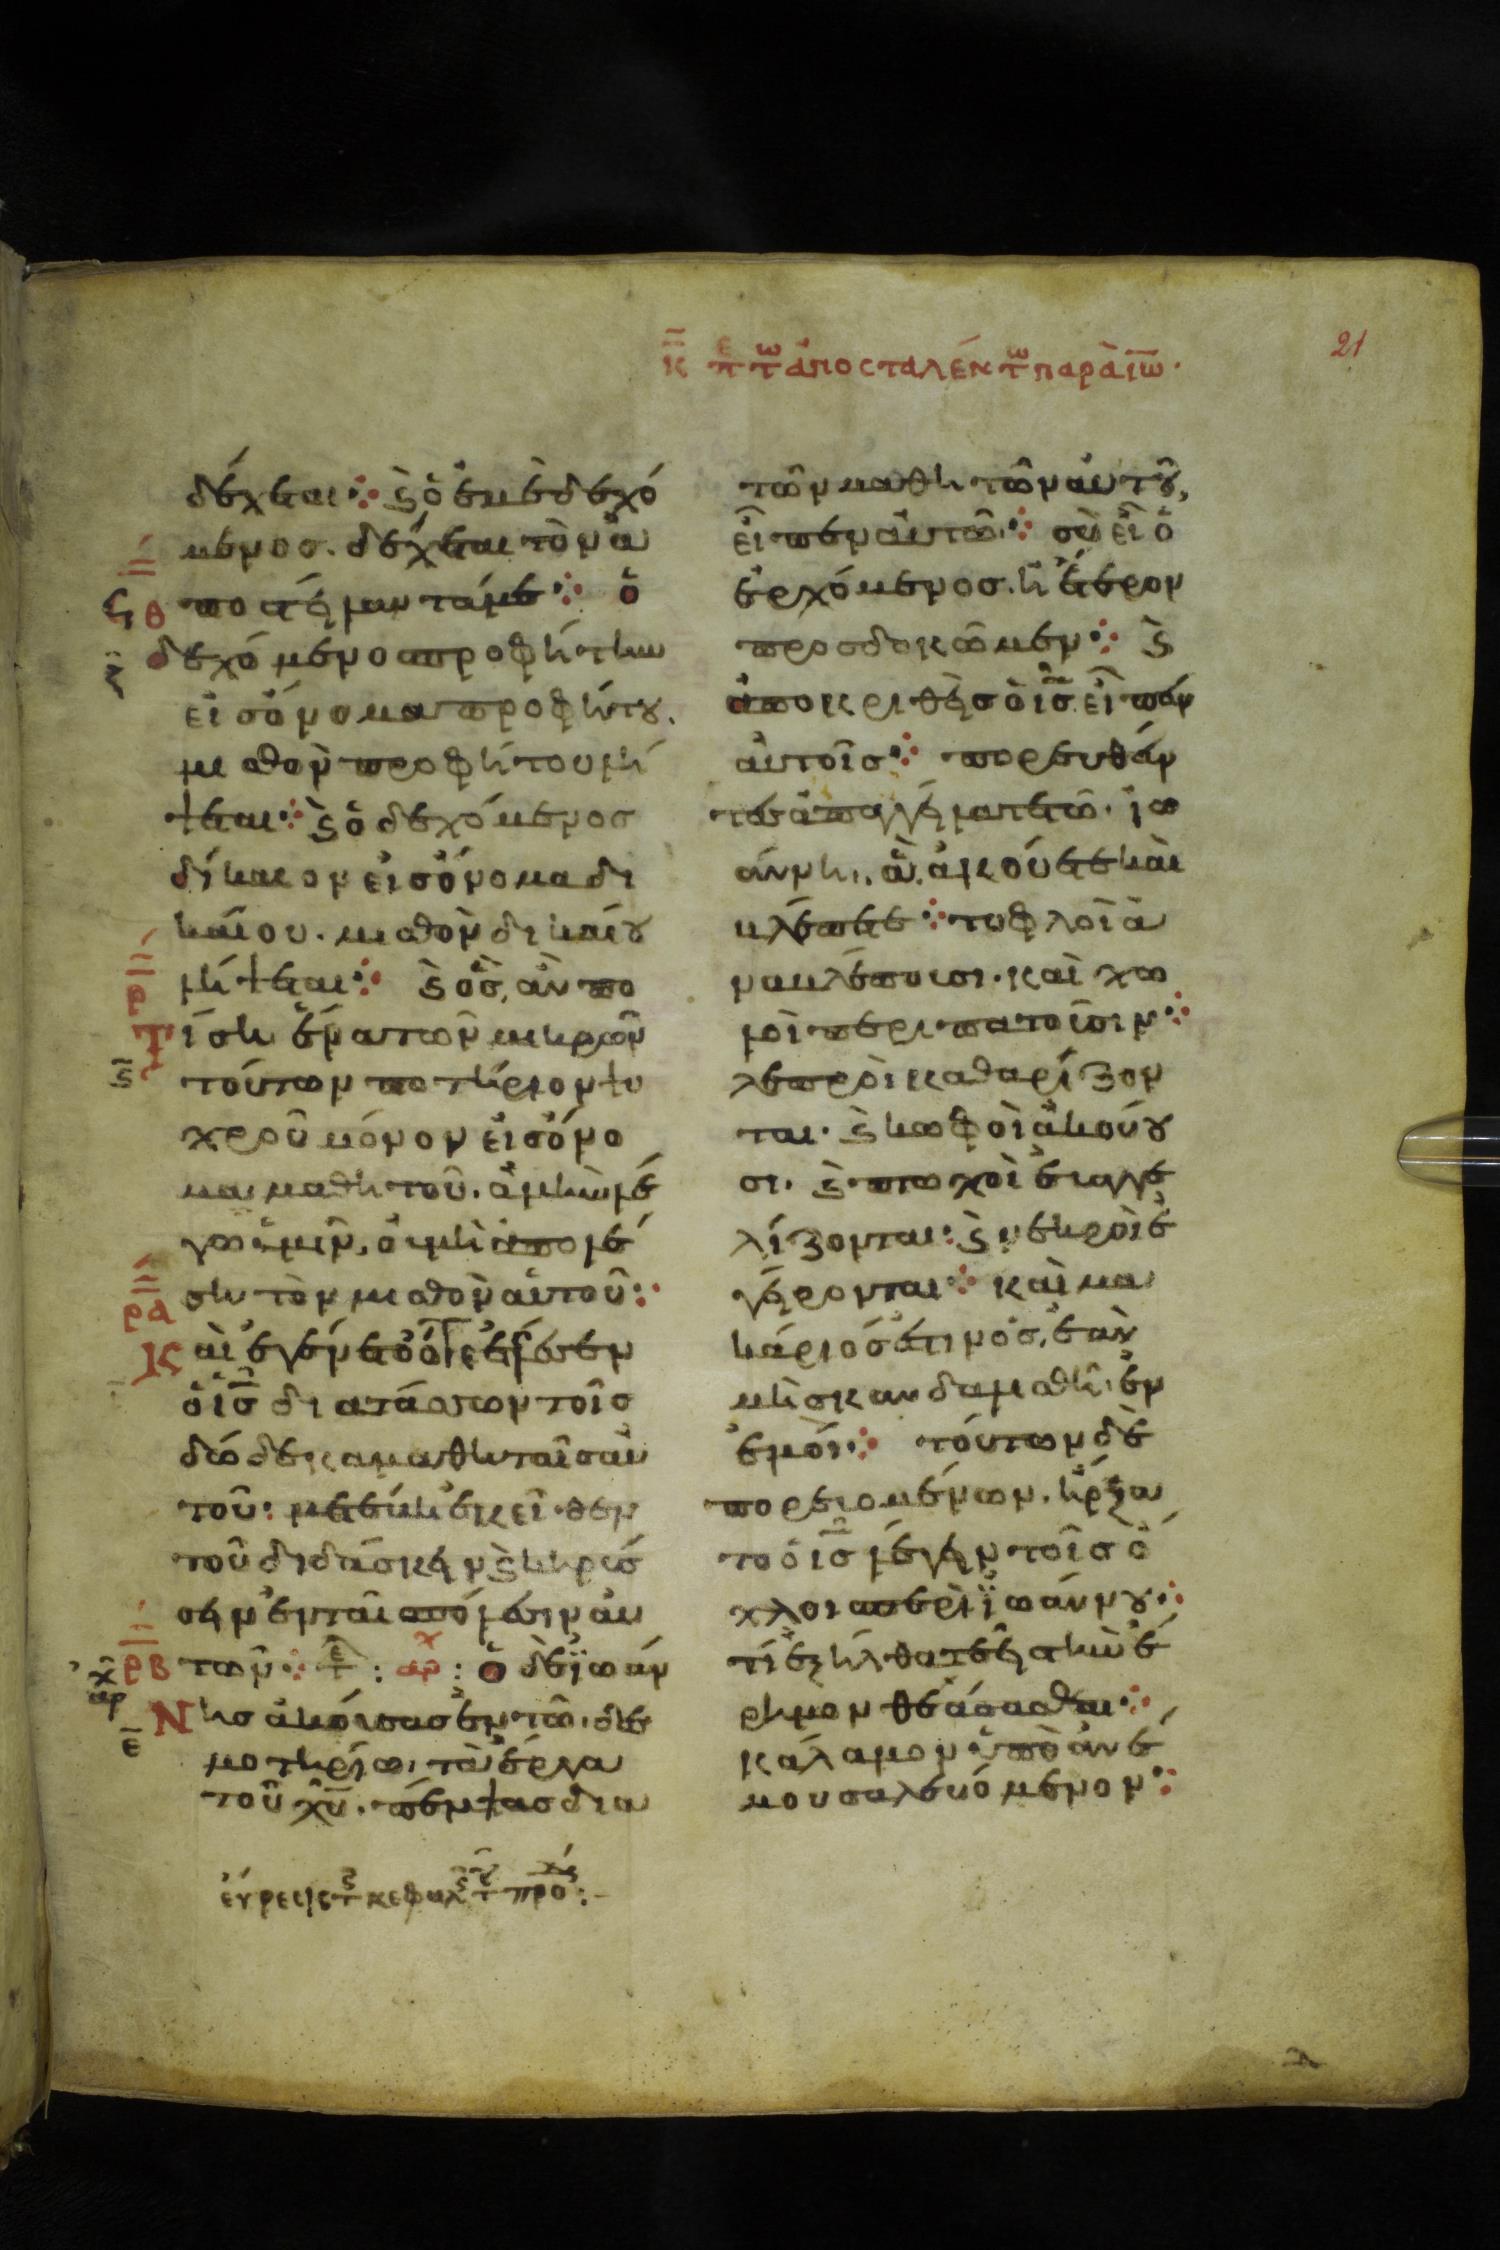 κ π̅ε τῶ ἀποσταλέντω παρὰ ἰω̅·
21
δέχεται· ϛ ὁ ἐμὲ δεχό
μενος. δέχεται τὸν ἀ
ποστείλαντά με· ὁ
δεχόμενο προφήτην
εἰσ ὄνομα προφήτου.
μισθὸν προφήτου λή
ψεται· ϛ ὁ δεχόμενος
δίκαιον εἰσ ὄνομα δι
καίου. μισθὸν δικαίου
λήψεται· ϛ ὃς, ἂν πο
Τίση ἕνα τῶν μικρῶν
τούτων ποτήριον ψυ
χροῦ μόνον εἰσ ὄνο
μα μαθητοῦ. ἀμὴν λέ
γω ὑμῖν, οὐ μὴ ἀπολέ
ση τὸν μισθὸν αὐτοῦ:
Καὶ ἐγένετο ὅτε ἐτέλεσεν
ὁ ι̅σ̅ διατάσσων τοῖς
δώδεκα μαθηταῖς αὐ
τοῦ: μετέβη ἐκεῖθεν
τοῦ διδάσκειν ϛ κηρύσ
σειν ἐν ταῖς πόλεσιν αὐ
ρβ τῶν· τε: αρχ: ὁ δὲ ἰωάν
Νης ἀκούσας ἐν τῶ δεσ
μοτηρίω, τὰ ἔργα
τοῦ χ̅υ̅. πέμψας δύο
τῶν μαθητῶν αὐτοῦ,
εἶπεν αὐτῶ· σὺ εἶ ὁ
ἐρχόμενος. ἢ ἕτερον
προσδοκῶμεν· ϛ
ἀποκριθεὶς ὁ ι̅σ̅ εἶπεν
αὐτοῖς· πορευθέν
τες ἀπαγγείλατε τῶ· ἰω
άννη, ἃ ἀκούετε καὶ
βλέπετε· τυφλοὶ ἀ
ναβλέπουσι. καὶ χω
λοὶ περιπατοῦσιν·
λεπροὶ καθαρίζον
ται. ϛ κωφοὶ ἀκούου
σι. ϛ πτωχοὶ εὐαγγε
λίζονται: ϛ νεκροὶ ἐ
γείρονται· καὶ μα
κάριος ἐστιν ὃς, ἐὰν
μὴ σκανδαλισθῆ ἐν
ἐμοί· τούτων δὲ
πορευομένων. ἤρξα
το ὁ ι̅σ̅ λέγειν τοῖς ὄ
χλοις περὶ ἰωάννου·
τί ἐξήλθατε εἰς τὴν ἔ
ρημον θεάσασθαι·
κάλαμον ὑπὸ ἀνέ
μου σαλευόμενον·